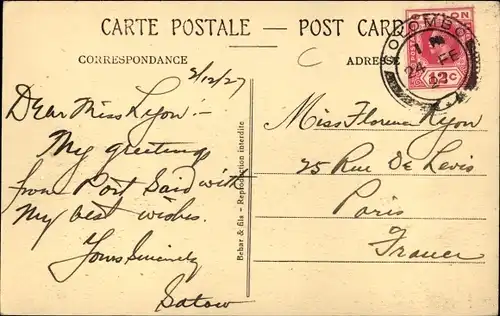 CARTE POSTALE — POST CARD
CEYLON
COLOMBO
24 FE
12c
CORRESPONDANCE
ADRESSE
C
2/12/27
Dear Miss Lyon :-
My greetings
from Port Said with
My best wishes.
Yours Sincerely
Satow
Behar & fils - Reproduction interdite
Miss Florence Lyon
25 Rue De Levis
Paris
France